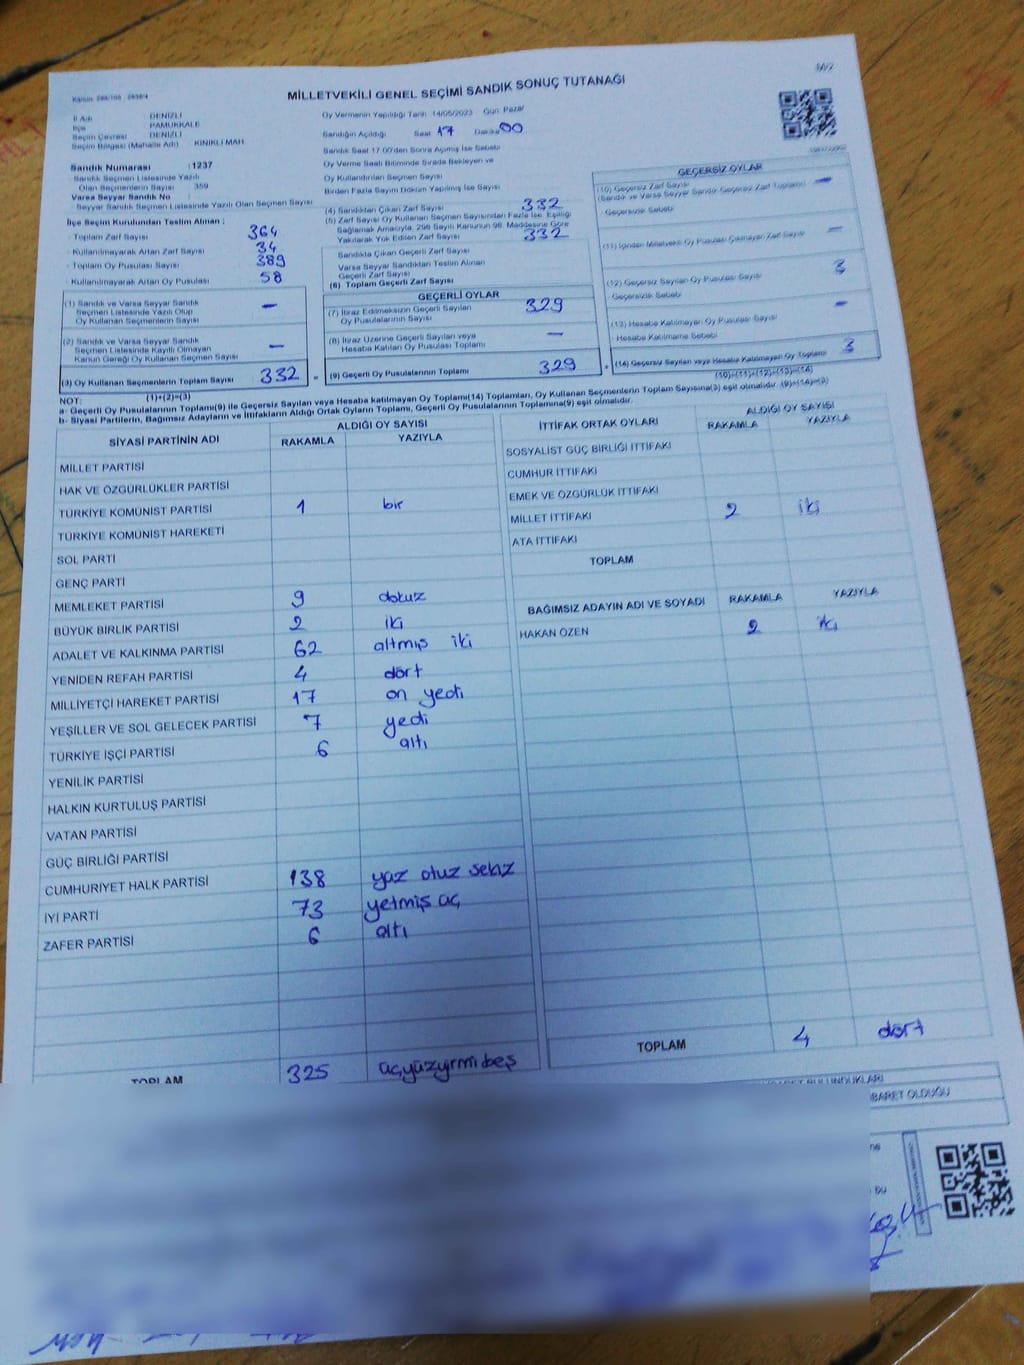 MİLLETVEKİLİ GENEL SEÇİMİ SANDIK SONUÇ TUTANAĞI
İl Adı DENİZLİ
İlçe PAMUKKALE
Seçim Çevresi DENİZLİ
Seçim Bölgesi (Mahalle Adı) KINIKLI MAH
Sandık Numarası : 1237
Sandık Seçmen Listesinde Yazılı
Olan Seçmenlerin Sayısı 359
Varsa Seyyar Sandık No :
Seyyar Sandık Seçmen Listesinde Yazılı Olan Seçmen Sayısı
İlçe Seçim Kurulundan Teslim Alınan ;
Toplam Zarf Sayısı 364
Kullanılmayarak Artan Zarf Sayısı 34
Toplam Oy Pusulası Sayısı 389
Kullanılmayarak Artan Oy Pusulası 58
(1) Sandık ve Varsa Seyyar Sandık
Seçmen Listesinde Yazılı Olup
Oy Kullanan Seçmenlerin Sayısı —
(2) Sandık ve Varsa Seyyar Sandık
Seçmen Listesinde Kayıtlı Olmayan
Kanun Gereği Oy Kullanan Seçmen Sayısı —
(3) Oy Kullanan Seçmenlerin Toplam Sayısı 332
(1)+(2)=(3)
Oy Vermenin Yapıldığı Tarih 14/05/2023 Gün Pazar
Sandığın Açıldığı Saat 17 Dakika 00
Sandık Saat 17.00'den Sonra Açılmış İse Sebebi
Oy Verme Saati Bitiminde Sırada Bekleyen ve
Oy Kullandırılan Seçmen Sayısı
Birden Fazla Sayım Döküm Yapılmış İse Sayısı
(4) Sandıktan Çıkan Zarf Sayısı 332
(5) Zarf Sayısı Oy Kullanan Seçmen Sayısından Fazla İse, Eşitliği
Sağlamak Amacıyla, 298 Sayılı Kanunun 98. Maddesine Göre
Yakılarak Yok Edilen Zarf Sayısı 332
Sandıkta Çıkan Geçerli Zarf Sayısı
Varsa Seyyar Sandıktan Teslim Alınan
Geçerli Zarf Sayısı
(6) Toplam Geçerli Zarf Sayısı
GEÇERLİ OYLAR
(7) İtiraz Edilmeksizin Geçerli Sayılan
Oy Pusulalarının Sayısı 329
(8) İtiraz Üzerine Geçerli Sayılan veya
Hesaba Katılan Oy Pusulası Toplamı —
(9) Geçerli Oy Pusulalarının Toplamı 329
GEÇERSİZ OYLAR
(10) Geçersiz Zarf Sayısı —
(Sandık ve Varsa Seyyar Sandık Geçersiz Zarf Toplamı)
Geçersizlik Sebebi
(11) İçinden Milletvekili Oy Pusulası Çıkmayan Zarf Sayısı —
(12) Geçersiz Sayılan Oy Pusulası Sayısı 3
Geçersizlik Sebebi
(13) Hesaba Katılmayan Oy Pusulası Sayısı —
Hesaba Katılmama Sebebi
(14) Geçersiz Sayılan veya Hesaba Katılmayan Oy Pusulası Toplamı 3
(10)+(11)+(12)+(13)=(14)
NOT:
a- Geçerli Oy Pusulalarının Toplamı(9) ile Geçersiz Sayılan veya Hesaba katılmayan Oy Toplamı(14) Toplamları, Oy Kullanan Seçmenlerin Toplam Sayısına(3) eşit olmalıdır. (9)+(14)=(3)
b- Siyasi Partilerin, Bağımsız Adayların ve İttifakların Aldığı Ortak Oyların Toplamı, Geçerli Oy Pusulalarının Toplamına(9) eşit olmalıdır.
SİYASİ PARTİNİN ADI ALDIĞI OY SAYISI
RAKAMLA YAZIYLA
MİLLET PARTİSİ
HAK VE ÖZGÜRLÜKLER PARTİSİ
TÜRKİYE KOMÜNİST PARTİSİ 1 bir
TÜRKİYE KOMÜNİST HAREKETİ
SOL PARTİ
GENÇ PARTİ
MEMLEKET PARTİSİ 9 dokuz
BÜYÜK BİRLİK PARTİSİ 2 iki
ADALET VE KALKINMA PARTİSİ 62 altmış iki
YENİDEN REFAH PARTİSİ 4 dört
MİLLİYETÇİ HAREKET PARTİSİ 17 on yedi
YEŞİLLER VE SOL GELECEK PARTİSİ 7 yedi
TÜRKİYE İŞÇİ PARTİSİ 6 altı
YENİLİK PARTİSİ
HALKIN KURTULUŞ PARTİSİ
VATAN PARTİSİ
GÜÇ BİRLİĞİ PARTİSİ
CUMHURİYET HALK PARTİSİ 138 yüz otuz sekiz
İYİ PARTİ 73 yetmiş üç
ZAFER PARTİSİ 6 altı
TOPLAM 325 üçyüzyirmibeş
İTTİFAK ORTAK OYLARI ALDIĞI OY SAYISI
RAKAMLA YAZIYLA
SOSYALİST GÜÇ BİRLİĞİ İTTİFAKI
CUMHUR İTTİFAKI
EMEK VE ÖZGÜRLÜK İTTİFAKI
MİLLET İTTİFAKI 2 iki
ATA İTTİFAKI
TOPLAM
BAĞIMSIZ ADAYIN ADI VE SOYADI RAKAMLA YAZIYLA
HAKAN ÖZEN 2 iki
TOPLAM 4 dört
BULUNDUKLARI
OLDUĞU